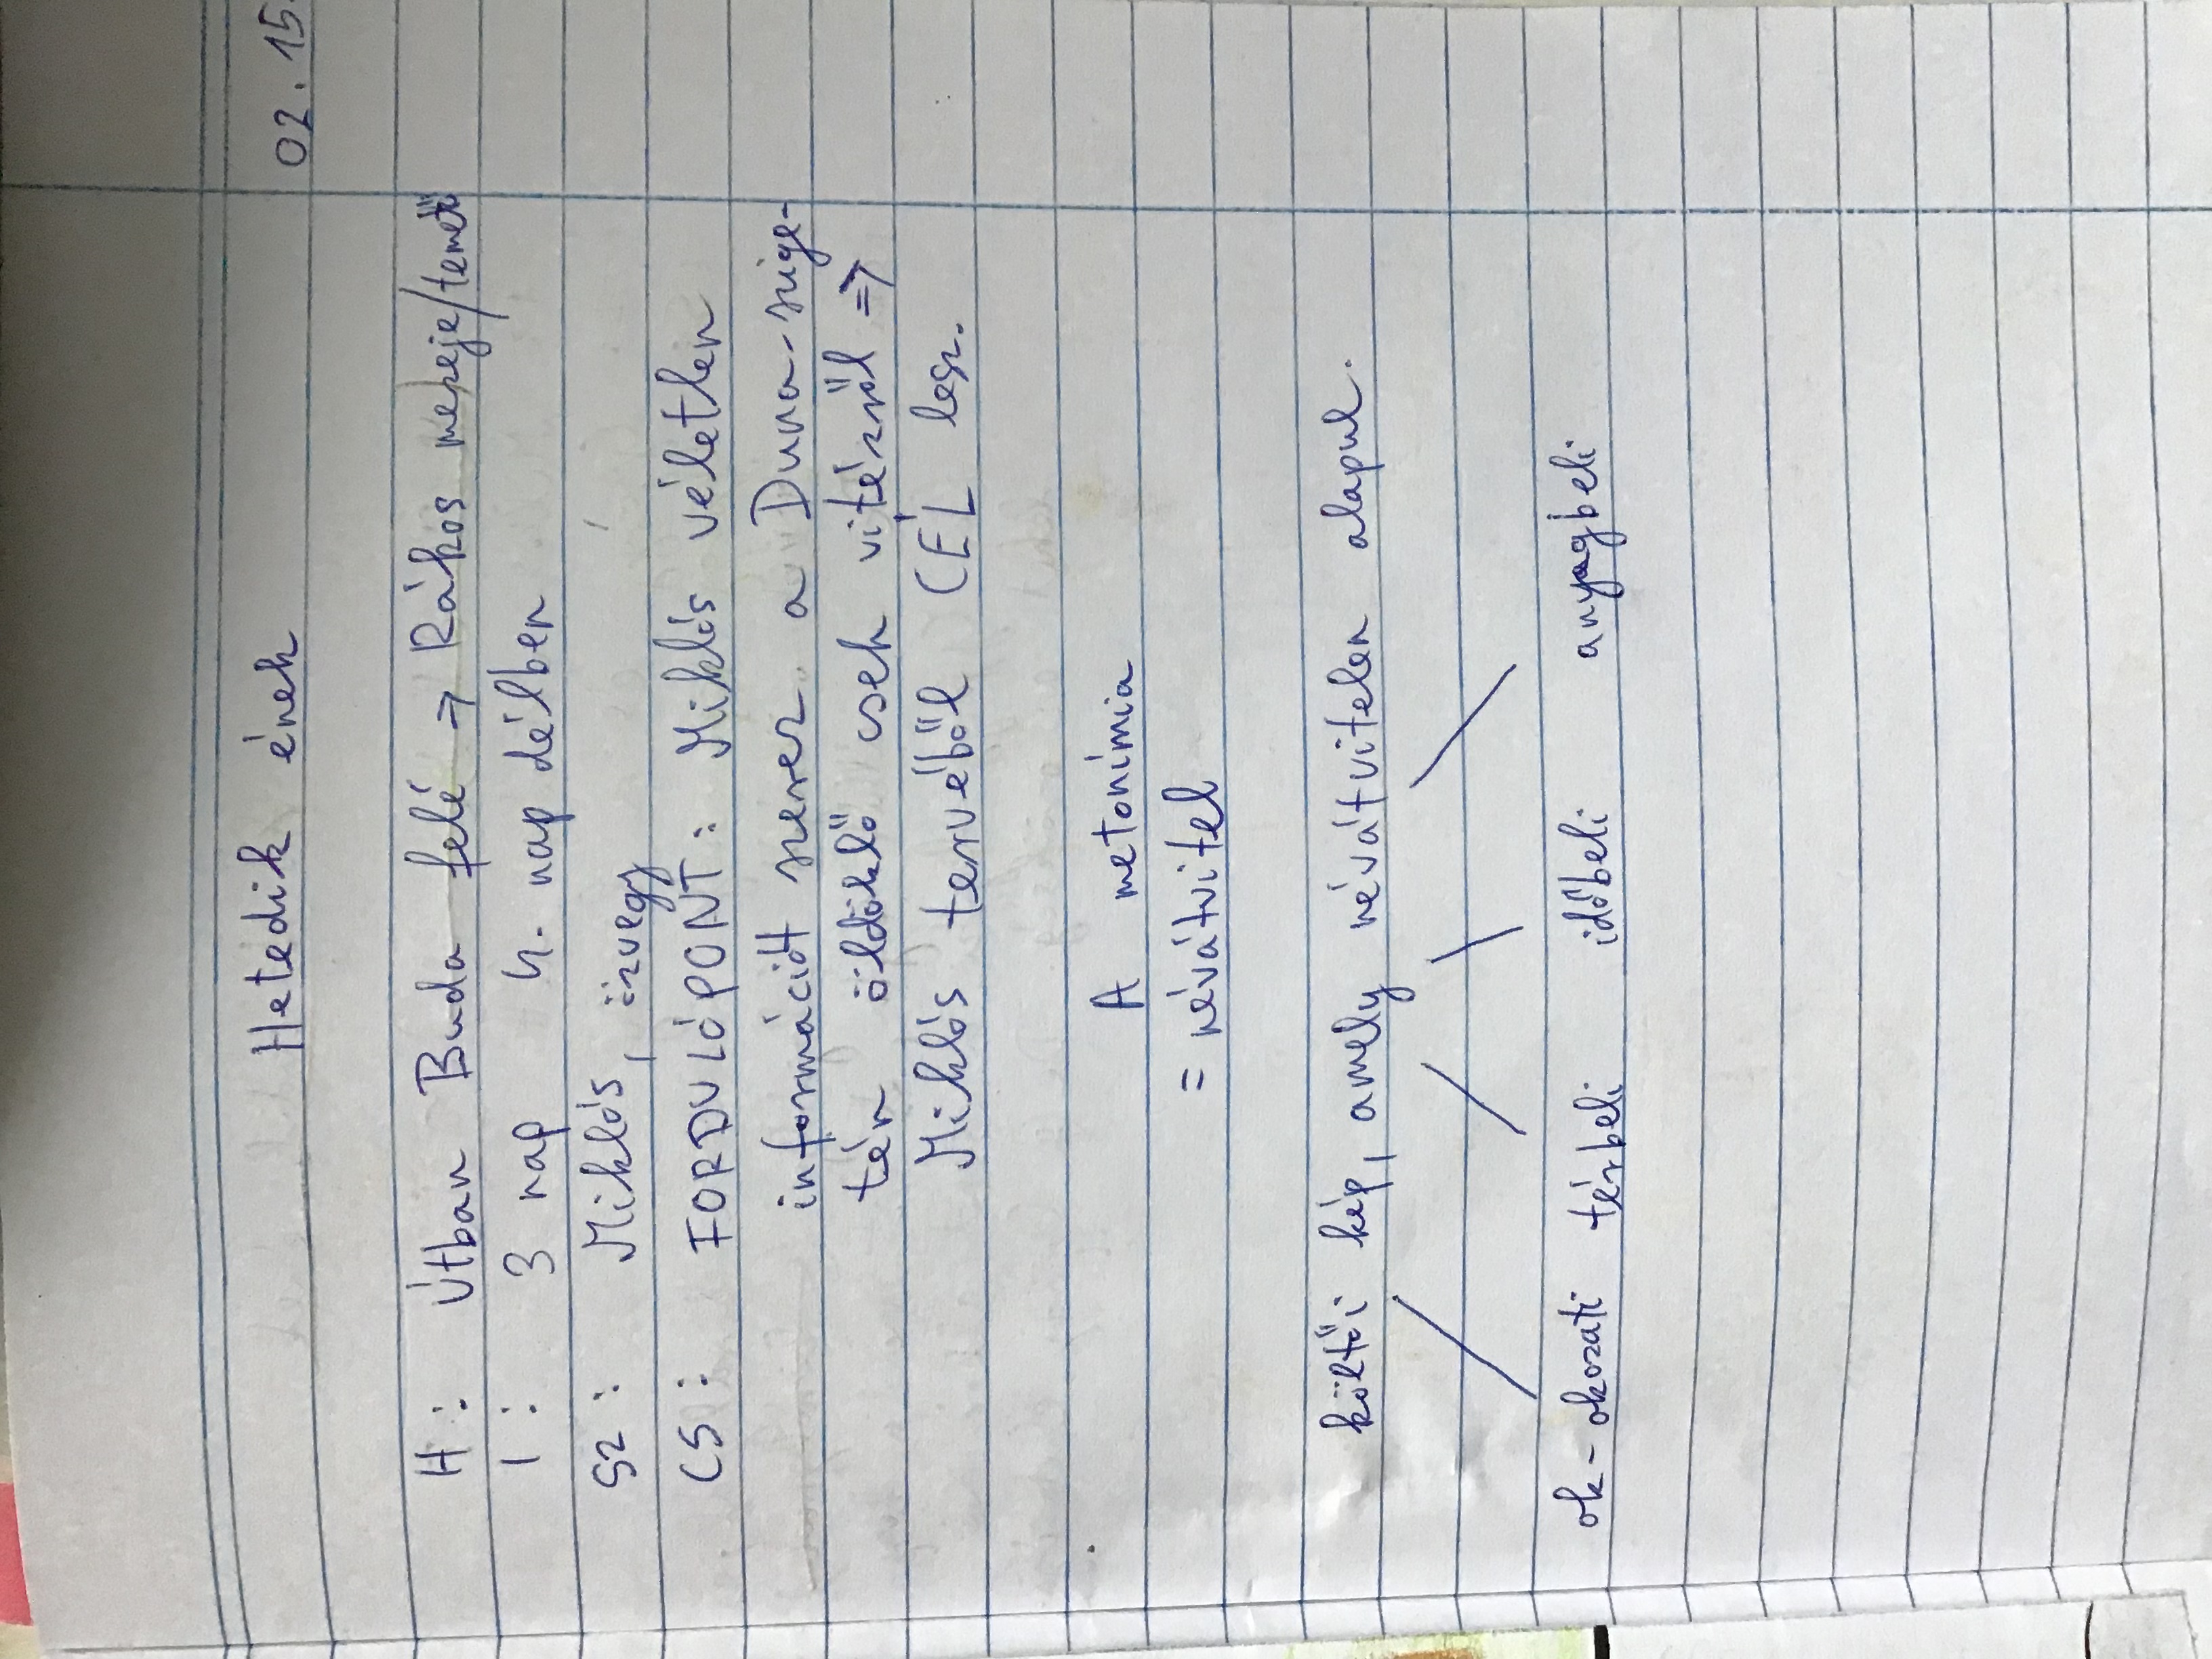 02. 15.
Hetedik ének
H: Útban Buda felé → Rákos mezeje/temető
I: 3 nap 4. nap délben
SZ: Miklós, özvegy
CS: FORDULÓPONT: Miklós véletlen
információt szerez a Duna-szige-
tén öldöklő cseh vitézről =>
Miklós tervéből CÉL lesz.
A metonímia
= névátvitel
költői kép, amely névátvitelen alapul.
ok-okozati térbeli időbeli anyagbeli